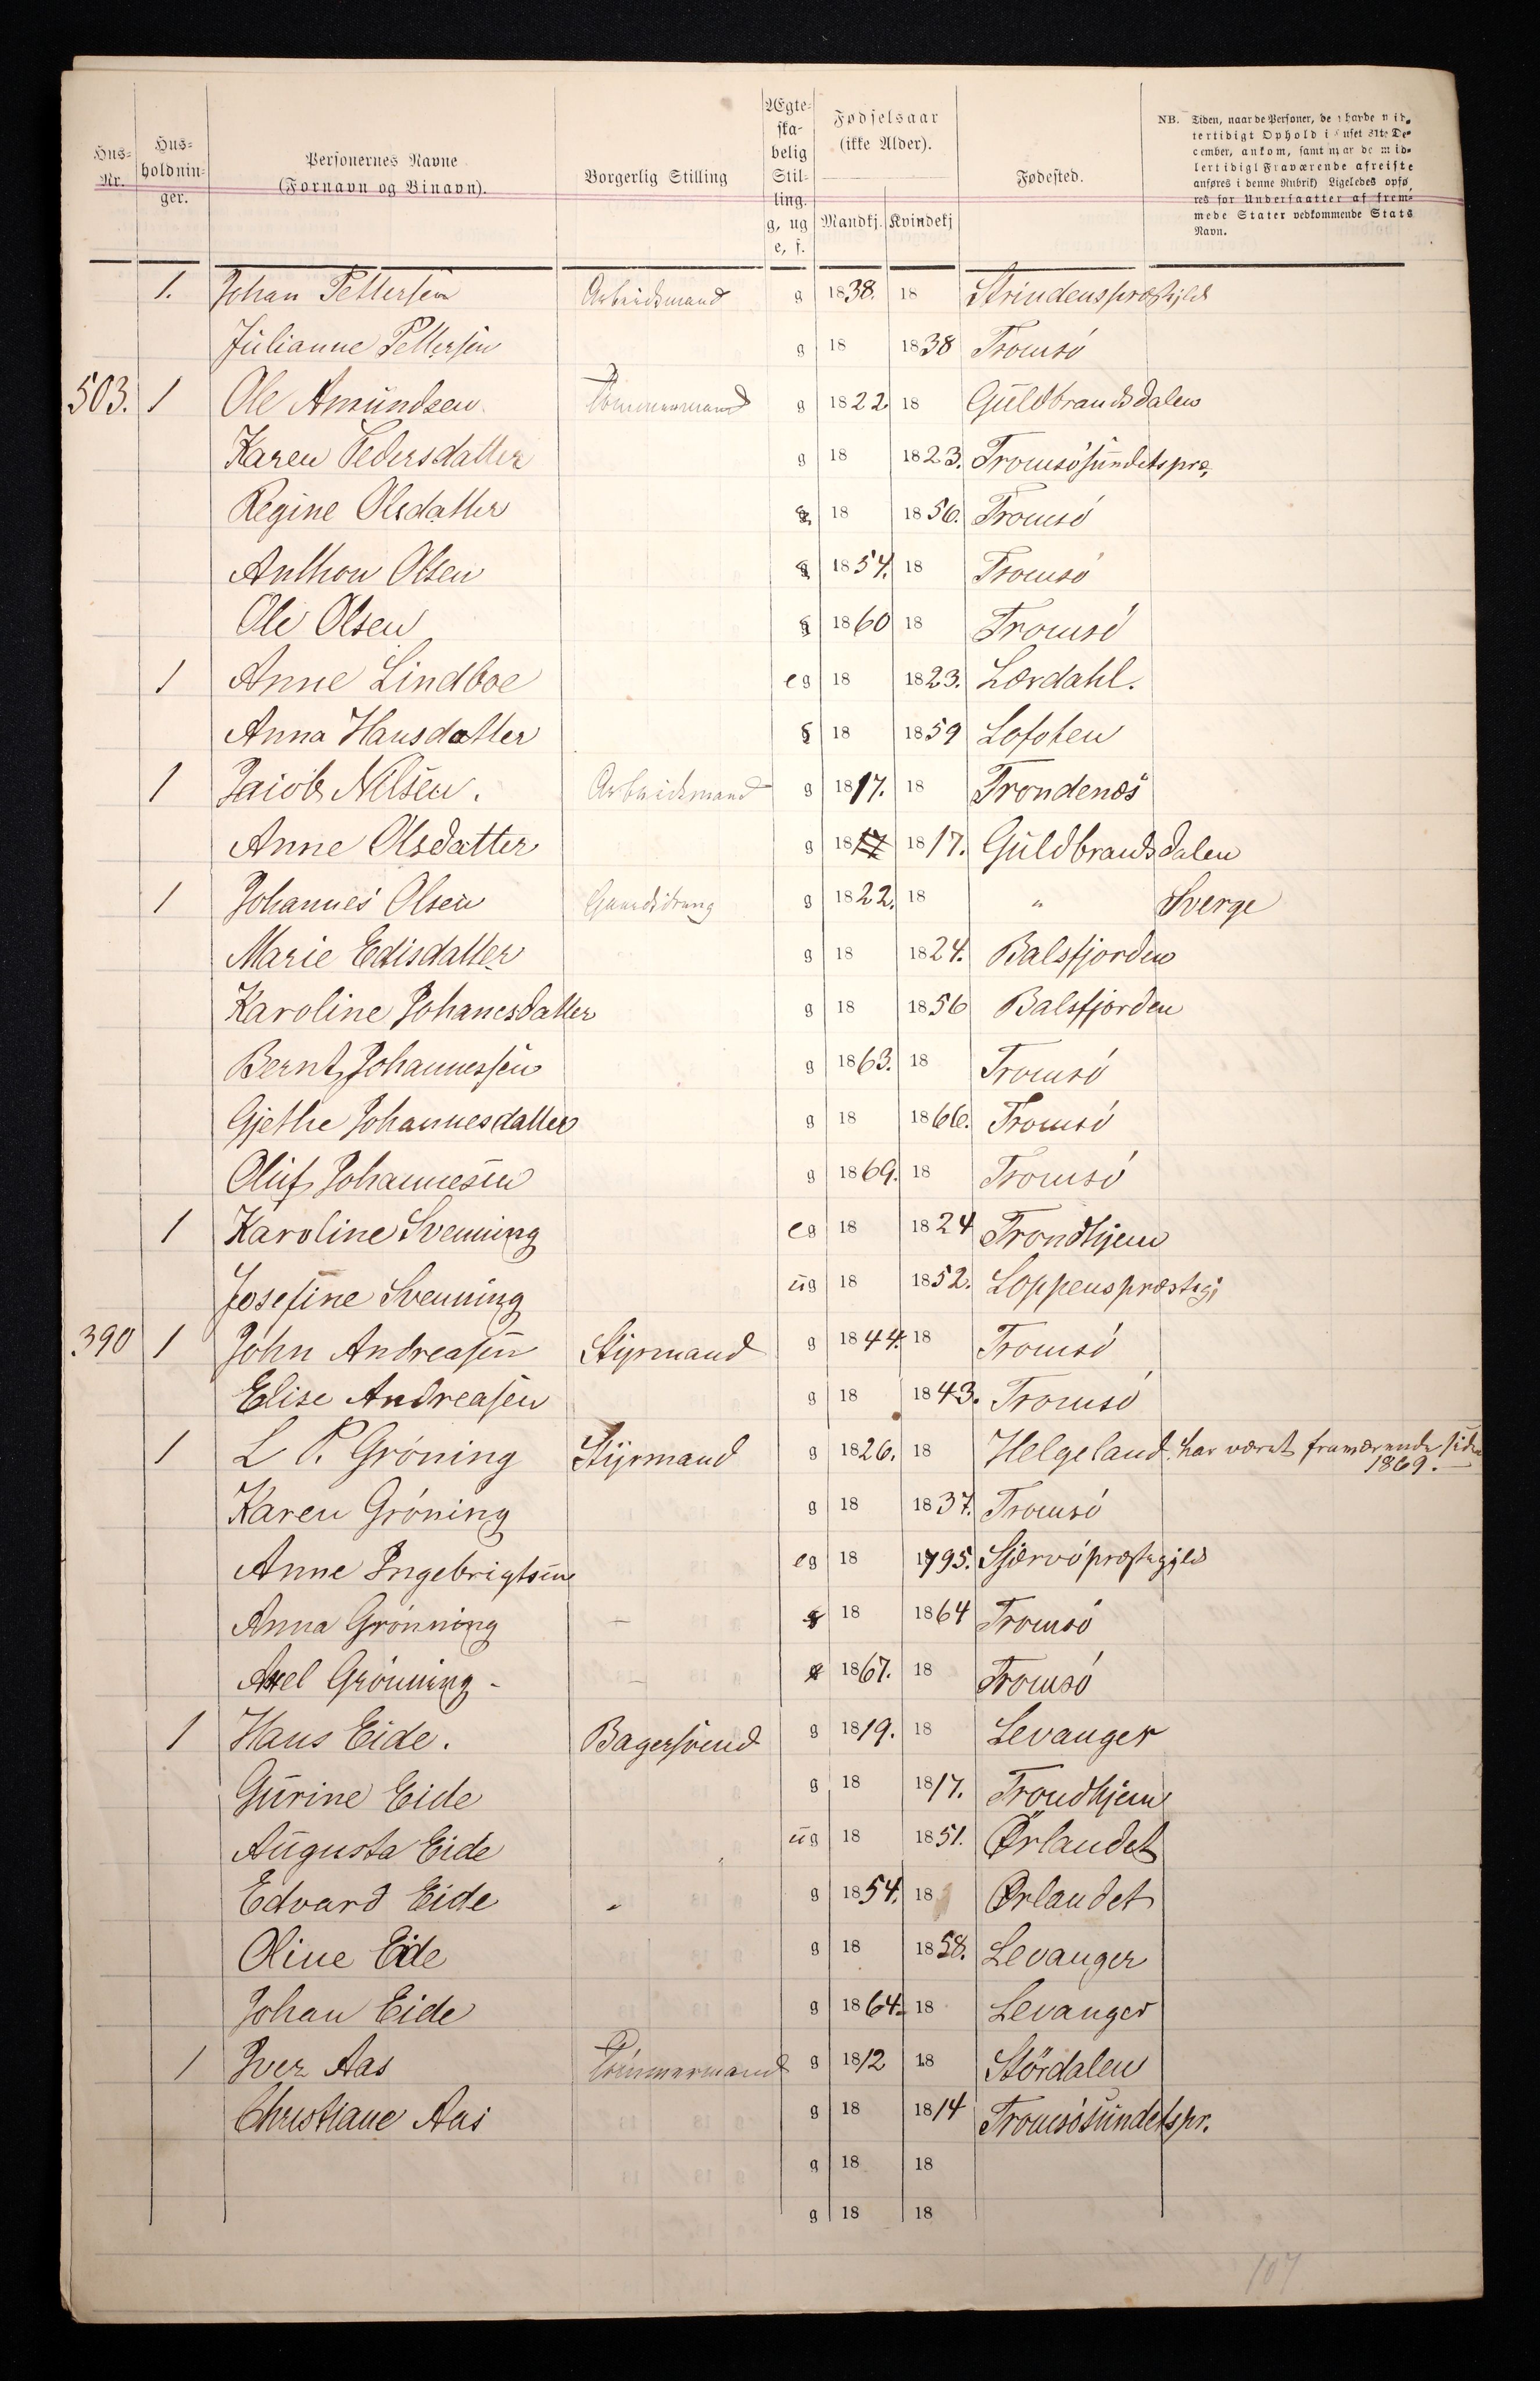 Hus-Nr. Hus-holdnin-ger. Personernes Navne (Fornavn og Binavn). Borgerlig Stilling Ægte-ska-belig Stil-ling. g, ug e, f. Fødselsaar (ikke Alder). Mandkj. Kvindekj Fødested.
NB. Tiden, naar de Personer, de
tertidigt Ophold i Huset 31te De-
cember, ankom, samt naar de mid-
lertidigt Fraværende afreiste
anføres i denne Rubrik) Ligeledes opfø
res for Undersaatter af frem-
mede Stater vedkommende Stats
Navn.
1. Johan Pettersen Arbeidsmand g 1838. 18 Strindenspræstgjeld
Julianne Pettersen g 18 1838 Tromsö
503. 1 Ole Amundsen Tömmermand g 1822 18 Guldbrandsdalen
Karen Pedersdatter g 18 1823. Tromsösundetspræ.
Regine Olsdatter g 18 1856. Tromsö
Anthon Olsen g 1854. 18 Tromsö
Ole Olsen g 1860 18 Tromsö
1 Anne Lindboe eg 18 1823. Lærdahl.
Anna Hansdatter g 18 1859 Lofoten
1 Jaiob Nilsen. Arbeidsmand g 1817. 18 Trondenæs
Anne Olsdatter g 1817 1817. Guldbrandsdalen
1 Johannes Olsen Gaardsdreng g 1822. 18 " Sverge
Marie Edisdatter g 18 1824. Balsfjorden
Karoline Johanesdatter g 18 1856 Balsfjorden
Bernt Johannessen g 1863. 18 Tromsö
Gjethe Johannesdatter g 18 1866. Tromsö
Oluf Johannesen g 1869. 18 Tromsö
1 Karoline Svenning eg 18 1824 Trondhjem
Josefine Svenning ug 18 1852. Loppenspræstgj
390 1 John Andreasen Styrmand g 1844. 18 Tromsö
Elise Andreasen g 18 1843. Tromsö
1 L P. Gröning Styrmand g 1826. 18 Helgeland. har været fraværende siden
1869.
Karen Gröning g 18 1837. Tromsö
Anne Ingebrigtsen eg 18 1795. Skjervöpræstegjeld
Anna Grönning g 18 1864 Tromsö
Axel Grönning - g 1867. 18 Tromsö
1 Hans Eide. Bagersvend g 1819. 18 Levanger
Gurine Eide g 18 1817. Trondhjem
Augusta Eide ug 18 1851. Ørlandet
Edvard Eide g 1854. 18 Ørlandet
Oline Eide g 18 1858. Levanger
Johan Eide g 1864. 18 Levanger
1 Iver Aas Tömmermand g 1812 18 Stördalen
Christiane Aas g 18 1814 Tromsösundetspr.
g 18 18
g 18 18
107